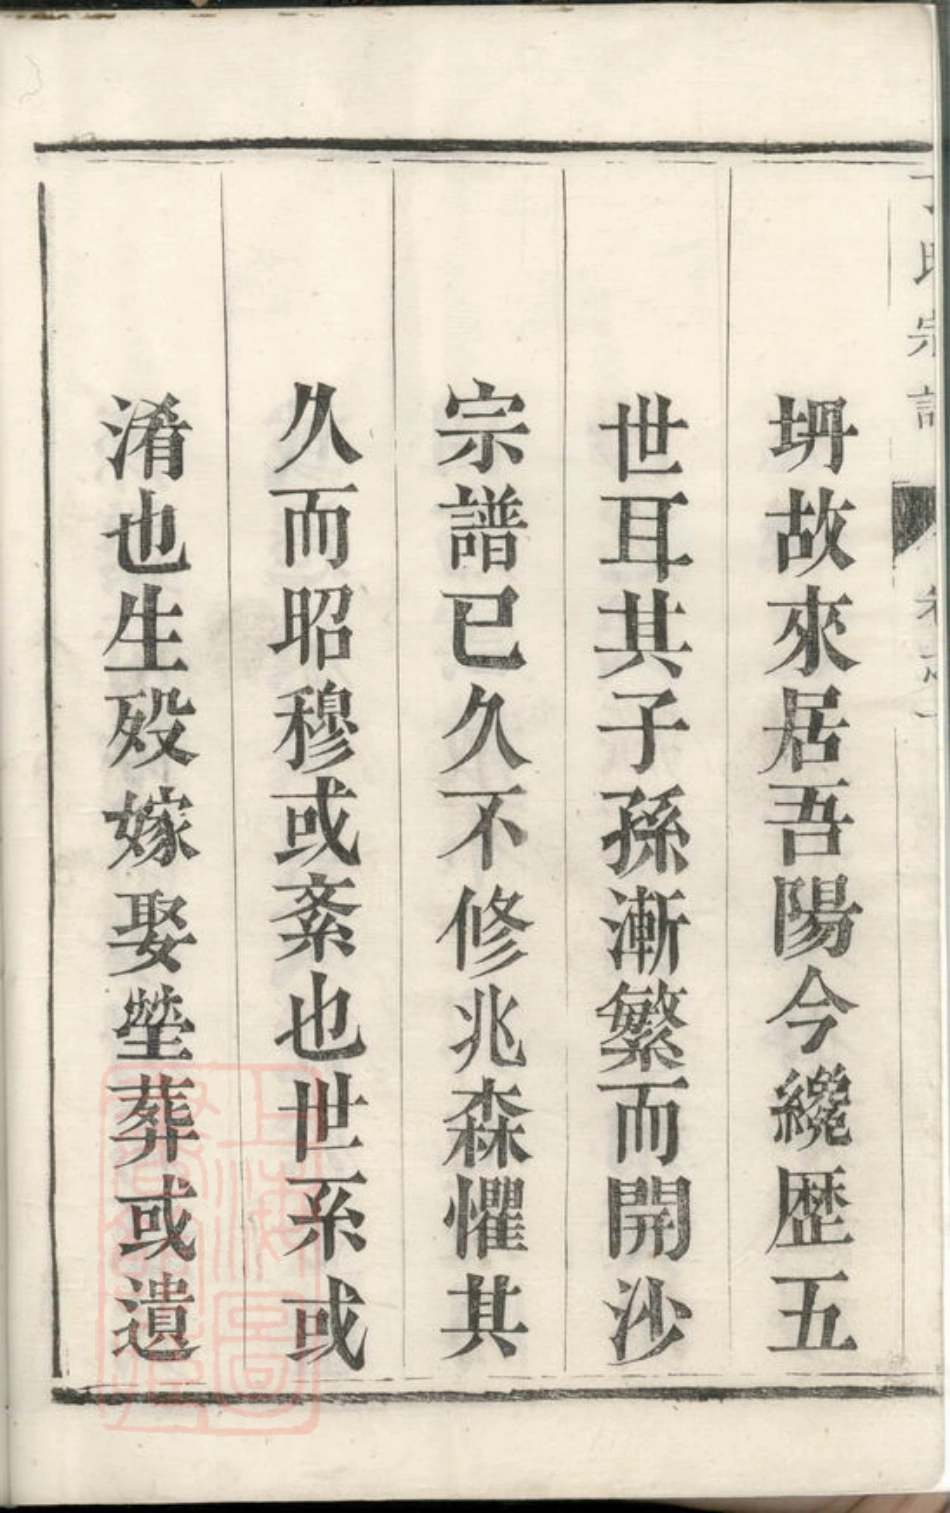 坍故來居吾陽今纔歴五
世耳其子孫漸繁而開沙
宗譜已久不修兆森懼其
久而昭穆或紊也世系或
淆也生殁嫁娶塋葬或遺
氏宗譜
上海圖書館藏